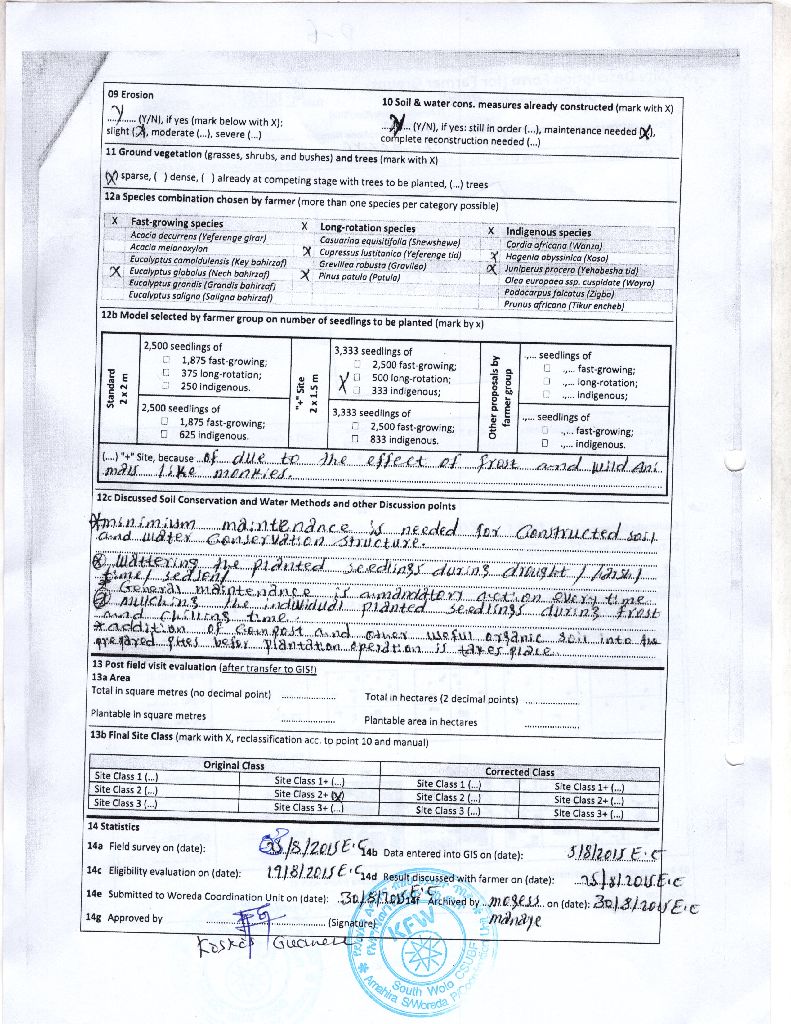 09 Erosion
10 Soil & water cons. measures already constructed (mark with X)
Y (Y/N), if yes (mark below with X):
slight (X), moderate (...), severe (...)
(Y/N), if yes: still in order (...), maintenance needed (X),
complete reconstruction needed (...)
11 Ground vegetation (grasses, shrubs, and bushes) and trees (mark with X)
(X) sparse, ( ) dense, ( ) already at competing stage with trees to be planted, (...) trees
12a Species combination chosen by farmer (more than one species per category possible)
X Fast-growing species
Acacia decurrens (Yeferenge girar)
Acacia melanoxylon
Eucalyptus camaldulensis (Key bahirzaf)
X Eucalyptus globolus (Nech bahirzaf)
Eucalyptus grandis (Grandis bahirzaf)
Eucalyptus saligna (Saligna bahirzaf)
X Long-rotation species
Casuarina equisitifolia (Shewshewe)
X Cupressus lustitanica (Yeferenge tid)
Grevillea robusta (Gravilea)
X Pinus patula (Patula)
X Indigenous species
Cordia africana (Wanza)
X Hagenia abyssinica (Koso)
X Juniperus procera (Yehabesha tid)
Olea europaea ssp. cuspidate (Wayra)
Podocarpus falcatus (Zigba)
Prunus africana (Tikur encheb)
12b Model selected by farmer group on number of seedlings to be planted (mark by x)
Standard
2 x 2 m
2,500 seedlings of
1,875 fast-growing;
375 long-rotation;
250 indigenous.
2,500 seedlings of
1,875 fast-growing;
625 indigenous.
"+" Site
2 x 1.5 m
3,333 seedlings of
2,500 fast-growing;
X 500 long-rotation;
333 indigenous;
3,333 seedlings of
2,500 fast-growing;
833 indigenous.
Other proposals by
farmer group
.,... seedlings of
.,... fast-growing;
.,... long-rotation;
.,... indigenous;
.,... seedlings of
.,... fast-growing;
.,... indigenous.
(....) "+" Site, because of due to the effect of frost and wild Ani
mals like monkies.
12c Discussed Soil Conservation and Water Methods and other Discussion points
minimium maintenance is needed for constructed soil
and water conservation structure.
Wattering the planted seedlings during drought /
time/ season/
General maintenance is amandatory action every time
mulching the individual planted seedlings during frost
and chilling time.
addition of compost and other useful organic soil into the
prepared pites befor plantation operation is takes place
13 Post field visit evaluation (after transfer to GIS!)
13a Area
Total in square metres (no decimal point) ..................
Total in hectares (2 decimal points) ..................
Plantable in square metres ..................
Plantable area in hectares ..................
13b Final Site Class (mark with X, reclassification acc. to point 10 and manual)
Original Class
Corrected Class
Site Class 1 (...)
Site Class 1+ (...)
Site Class 1 (...)
Site Class 1+ (...)
Site Class 2 (...)
Site Class 2+ (X)
Site Class 2 (...)
Site Class 2+ (...)
Site Class 3 (...)
Site Class 3+ (...)
Site Class 3 (...)
Site Class 3+ (...)
14 Statistics
14a Field survey on (date): /8/2015 E.C
14b Data entered into GIS on (date): 5/8/2015 E.C
14c Eligibility evaluation on (date): 19/8/2015 E.C
14d Result discussed with farmer on (date): 25/8/2015 E.C
14e Submitted to Woreda Coordination Unit on (date): 30/8/2015 E.C
14f Archived by mogess on (date): 30/8/2015 E.C
14g Approved by .................. (Signature)
KFW
South Wolo CSUGF